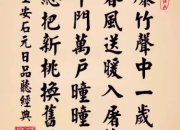 爆竹聲中一歲
春風送暖入屠
千門萬戶曈曈
總把新桃換舊
王安石元日品聽經典